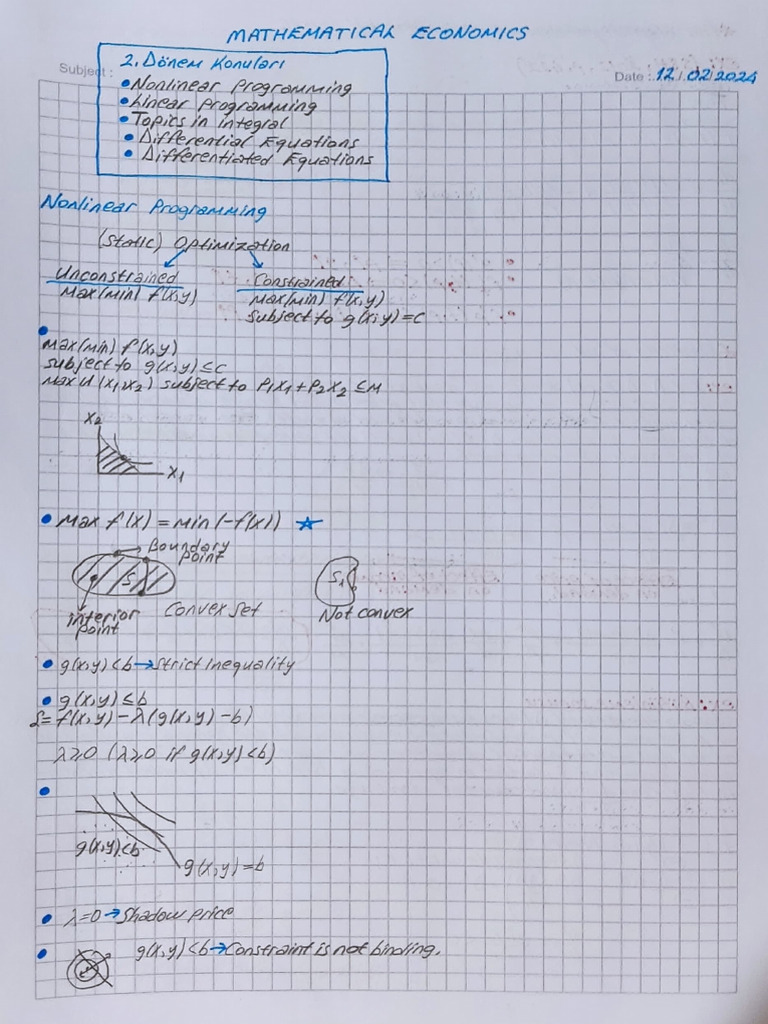 MATHEMATICAL ECONOMICS
Subject :
Date : 12.02.2024
2. Dönem Konuları
• Nonlinear Programming
• Linear Programming
• Topics in integral
• Differential Equations
• Differentiated Equations
Nonlinear Programming
(Static) Optimization
Unconstrained
Max(min) f(x,y)
Constrained
Max(min) f(x,y)
subject to g(x,y)=c
•
max(min) f(x,y)
subject to g(x,y)≤c
max U (x₁,x₂) subject to P₁x₁+P₂x₂≤M
x₂
x₁
• max f(x) = min(-f(x)) ☆
→ Boundary point
S
interior point
Convex set
S₁
Not convex
• g(x,y)<b → Strict Inequality
• g(x,y)≤b
L= f(x,y) - λ(g(x,y) - b)
λ≥0 (λ≥0 if g(x,y)<b)
•
g(x,y)<b
g(x,y)=b
• λ=0 → Shadow price
• g(x,y)<b → Constraint is not binding.